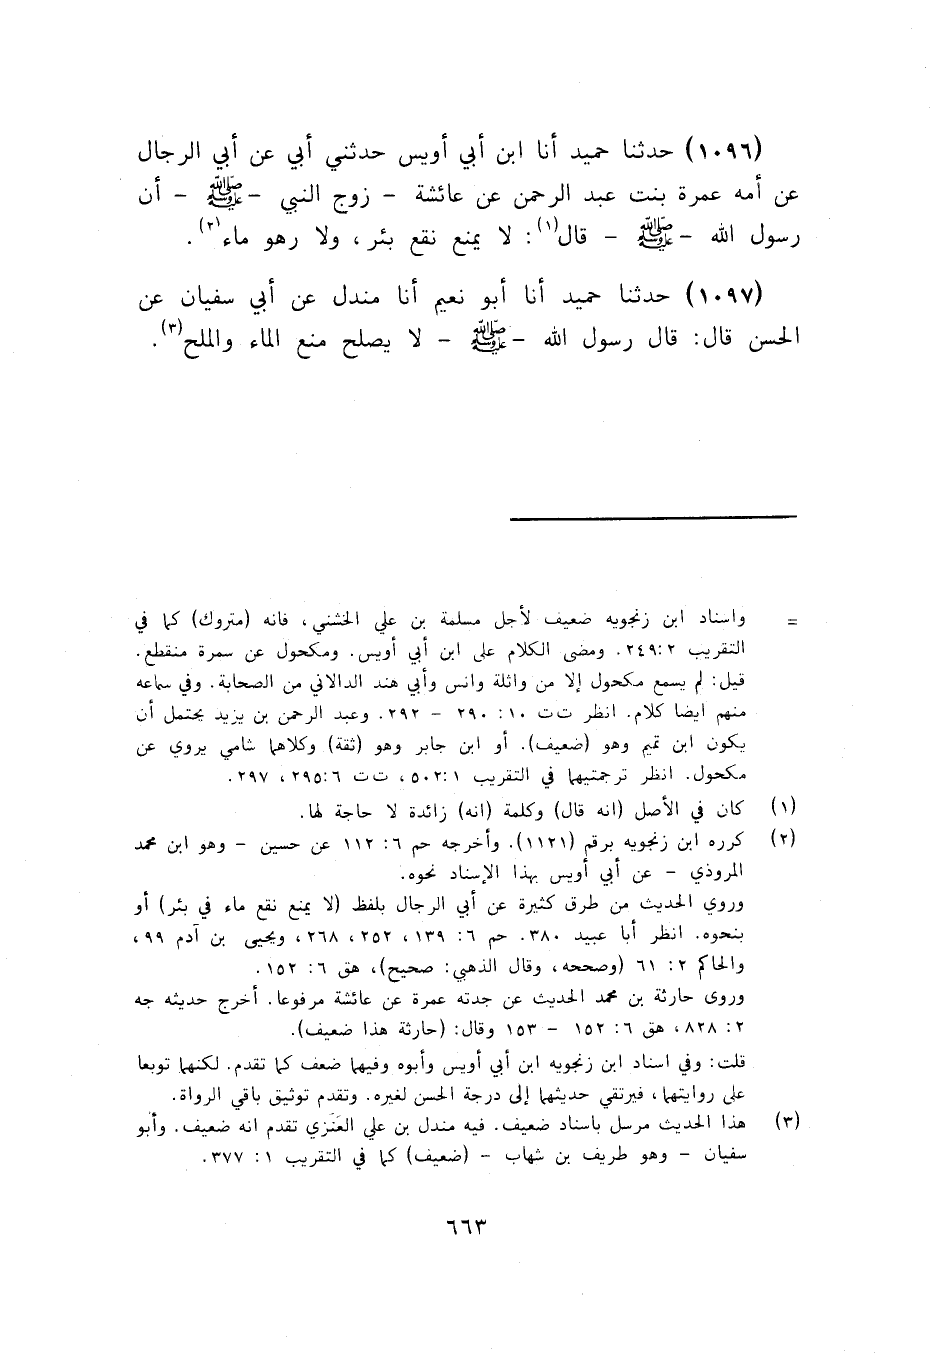 (١٠٩٦) حدثنا حميد أنا ابن أبي أويس حدثني أبي عن أبي الرجال
عن أمه عمرة بنت عبد الرحمن عن عائشة - زوج النبي - ﷺ - أن
رسول الله - ﷺ - قال(١): لا يمنع نقع بئر، ولا رهو ماء(٢).
(١٠٩٧) حدثنا حميد أنا أبو نعيم أنا مندل عن أبي سفيان عن
الحسن قال: قال رسول الله - ﷺ - لا يصلح منع الماء والملح(٣).
= واسناد ابن زنجويه ضعيف لأجل مسلمة بن علي الخشني، فانه (متروك) كما في
التقريب ٢:٢٤٩. ومضى الكلام على ابن أبي أويس. ومكحول عن سمرة منقطع.
قيل: لم يسمع مكحول إلا من واثلة وانس وأبي هند الدالاني من الصحابة. وفي سماعه
منهم ايضا كلام. انظر ت ت ١٠: ٢٩٠ - ٢٩٢. وعبد الرحمن بن يزيد يحتمل أن
يكون ابن تميم وهو (ضعيف). أو ابن جابر وهو (ثقة) وكلاهما شامي يروي عن
مكحول. انظر ترجمتيهما في التقريب ١:٥٠٢، ت ت ٦:٢٩٥، ٢٩٧.
(١) كان في الأصل (انه قال) وكلمة (انه) زائدة لا حاجة لها.
(٢) كرره ابن زنجويه برقم (١١٢١). وأخرجه حم ٦: ١١٢ عن حسين - وهو ابن محمد
المروذي - عن أبي أويس بهذا الإسناد نحوه.
وروي الحديث من طرق كثيرة عن أبي الرجال بلفظ (لا يمنع نقع ماء في بئر) أو
بنحوه. انظر أبا عبيد ٣٨٠. حم ٦: ١٣٩، ٢٥٢، ٢٦٨، ويحيى بن آدم ٩٩،
والحاكم ٢: ٦١ (وصححه، وقال الذهبي: صحيح)، هق ٦: ١٥٢.
وروى حارثة بن محمد الحديث عن جدته عمرة عن عائشة مرفوعا. أخرج حديثه جه
٢: ٨٢٨، هق ٦: ١٥٢ - ١٥٣ وقال: (حارثة هذا ضعيف).
قلت: وفي اسناد ابن زنجويه ابن أبي أويس وأبوه وفيهما ضعف كما تقدم. لكنهما توبعا
على روايتهما، فيرتقي حديثهما إلى درجة الحسن لغيره. وتقدم توثيق باقي الرواة.
(٣) هذا الحديث مرسل باسناد ضعيف. فيه مندل بن علي العَنَزي تقدم انه ضعيف. وأبو
سفيان - وهو طريف بن شهاب - (ضعيف) كما في التقريب ١: ٣٧٧.
٦٦٣